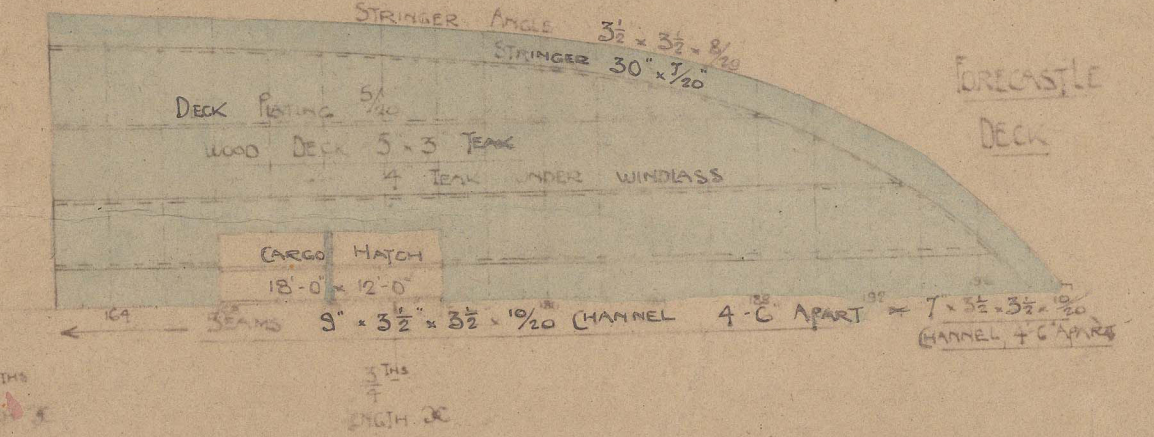 STRINGER ANGLE 3½ × 3½ × 8/20
STRINGER 30" × 7/20"
FORECASTLE
DECK
DECK PLATING 5/20
WOOD DECK 5 × 3 TEAK
4 TEAK UNDER WINDLASS
CARGO HATCH
18'-0" × 12'-0"
164
BEAMS 9" × 3½" × 3½ × 10/20 CHANNEL 4-6" APART
192
7 × 3½ × 3½ × 10/20
CHANNEL 4'6" APART
THS
¾ THS